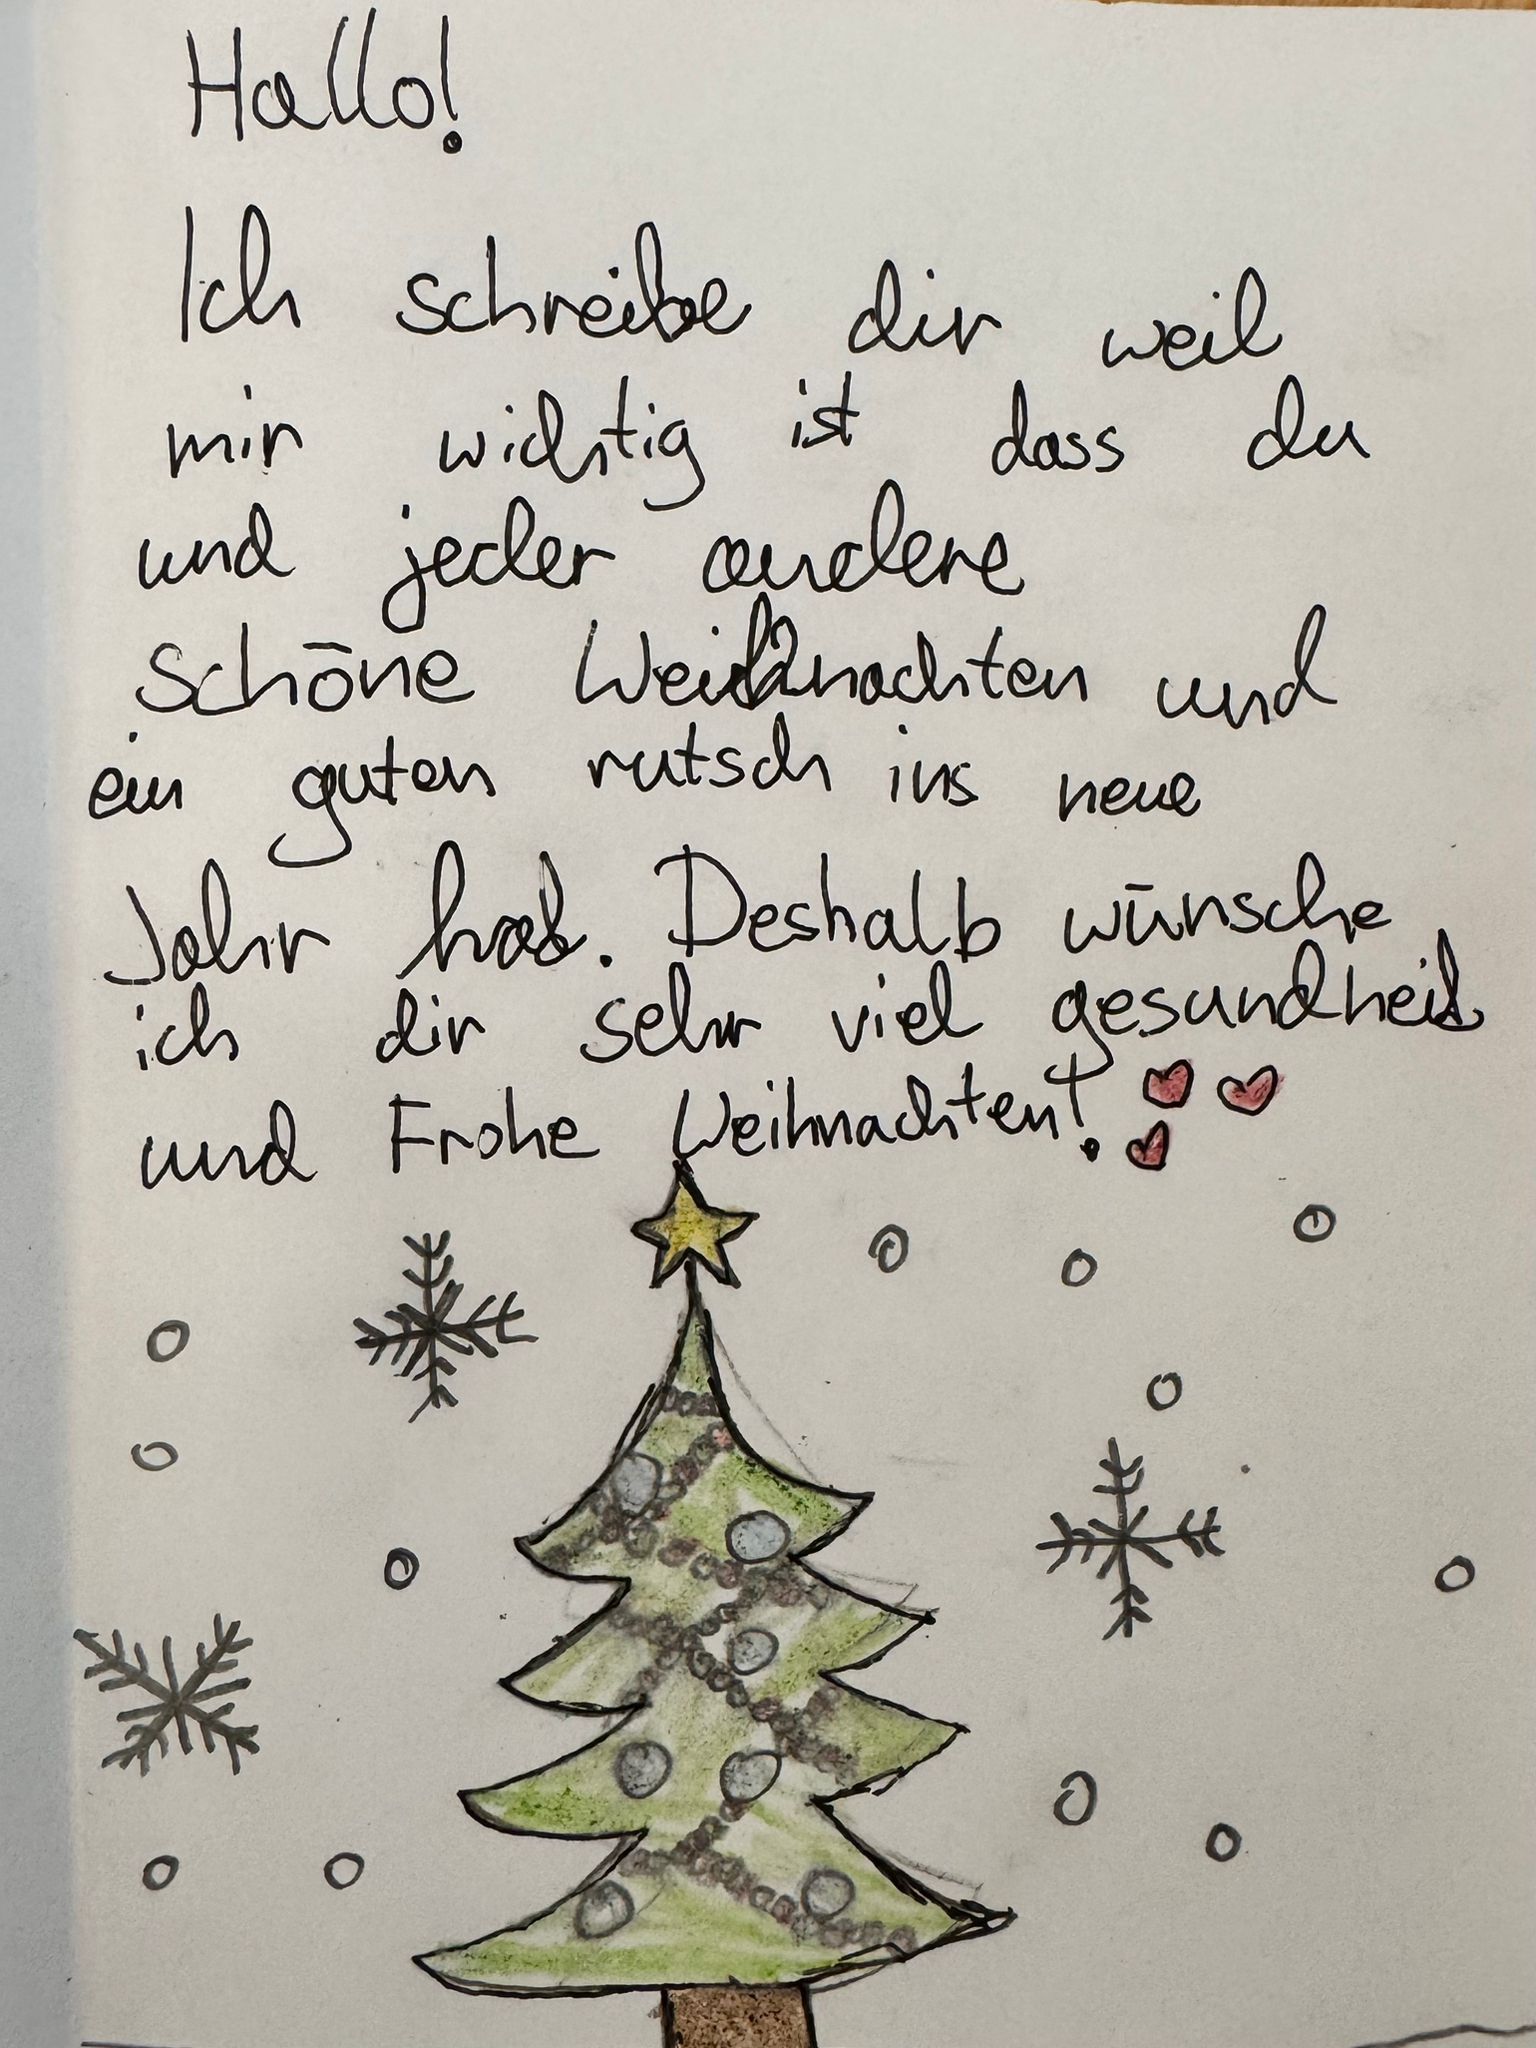 Hallo!
Ich schreibe dir weil
mir wichtig ist dass du
und jeder andere
schöne Weihnachten und
ein guten rutsch ins neue
Jahr hat. Deshalb wünsche
ich dir sehr viel gesundheit
und Frohe Weihnachten!